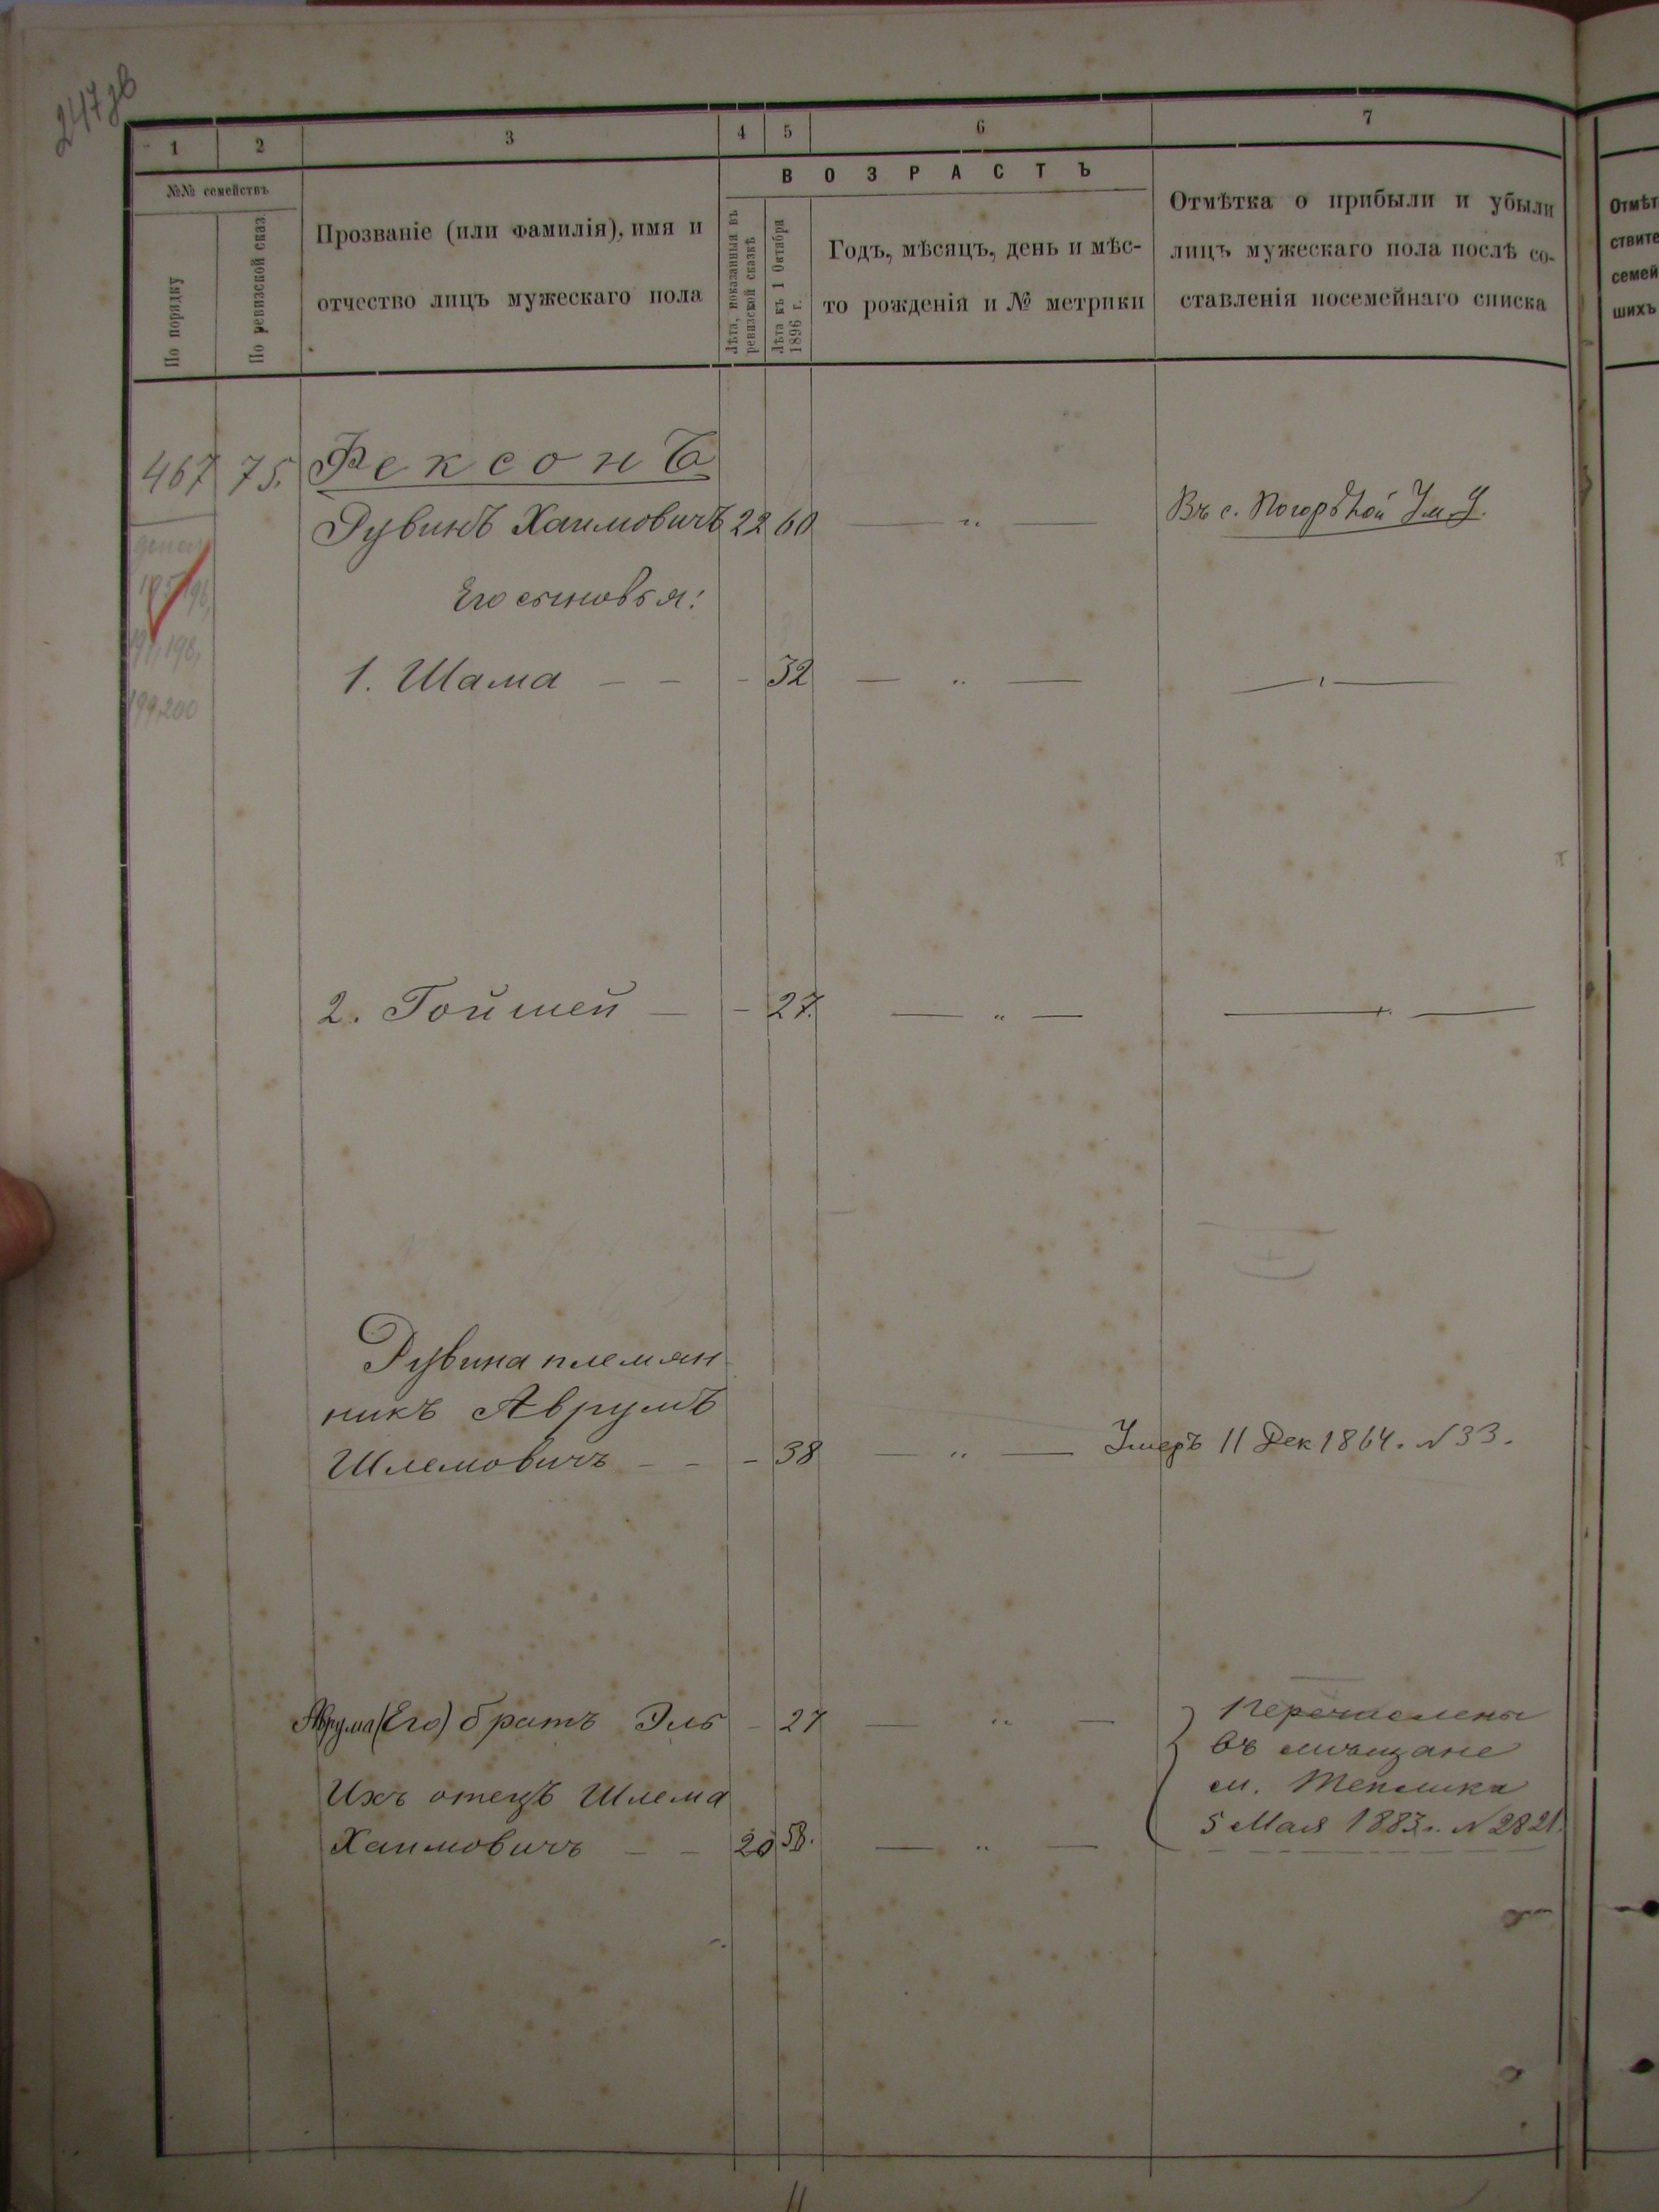 247 зв
1 2 3 4 5 6 7
№№ семействъ
По порядку
По ревизской сказ
Прозваніе (или фамилія), имя и
отчество лицъ мужескаго пола
ВОЗРАСТЪ
Лѣта, показанныя въ
ревизской сказкѣ
Лѣта къ 1 Октября
1896 г.
Годъ, мѣсяцъ, день и мѣс-
то рожденія и № метрики
Отмѣтка о прибыли и убыли
лицъ мужескаго пола послѣ со-
ставленія посемейнаго списка
Отмѣт
ствите
семей
шихъ
467 75. Фексонъ
Рувинъ Хаимовичъ 22 60 — „ — Въ с. Погорѣлой Ум. У.
Его сыновья:
197, 198,
199, 200
1. Шама — — - 32 — „ — — „ —
2. Гойшей — - 27. — „ — — „ —
Рувина племян
никъ Аврумъ
Шлемовичъ — — - 38 — „ — Умеръ 11 Дек 1864. №33.
Аврума (Его) братъ Эль - 27 — „ —
Перечислены
въ мѣщане
м. Теплика
5 Мая 1883 г. №2821.
Ихъ отецъ Шлема
Хаимовичъ — — 20 58. — „ —